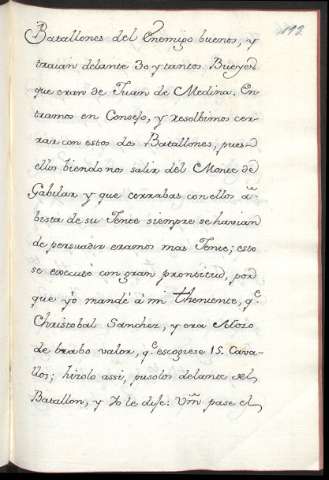 192
Batallones del Enemigo buenos, y
traian delante 30 y tantos Bueyes
que eran de Juan de Medina. En
tramos en Consejo, y resolbimos cer-
rar con estos dos Batallones, pues
ellos biendonos salir del Monte de
Gabilar y que cerrabas con ellos á
besta de su Jente siempre se havian
de persuadir eramos mas Jente; esto
se executó con gran prontitud, por
que yó mandé á mi Theniente, q.e
Christobal Sanchez, y era Mozo
de brabo valor, q.e escogiese 15. Cava-
llos; hizolo assi, pusolos delante del
Batallon, y Yo le dije: Vm̃ pase el